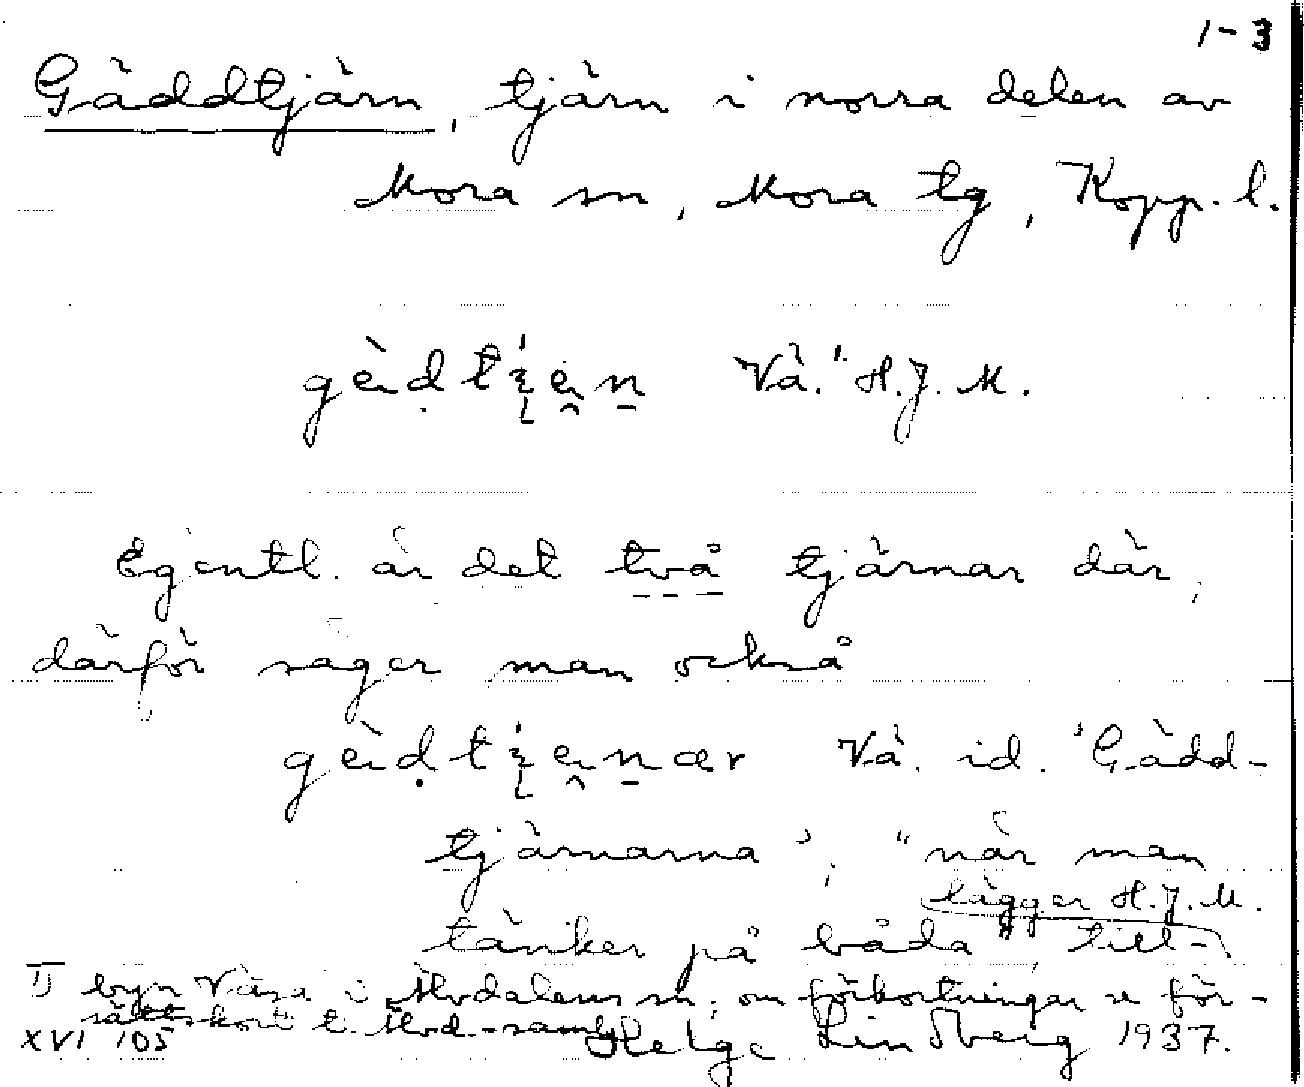 1-3
Gäddtjärn, tjärn i norra delen av
Mora sn, Mora tg, Kopp. l.
Vä.¹⁾ H.J.M.
Egentl. är det två tjärnar där,
därför säger man också
Vä. id. 'Gädd-
tjärnarna', "när man
tänker på båda", till-
lägger H.J.M.
1) byn Väsa i Älvdalens sn; om förkortningar se för-
sättskort t. Älvd.-saml.
XVI 105 Helge Lindberg 1937.